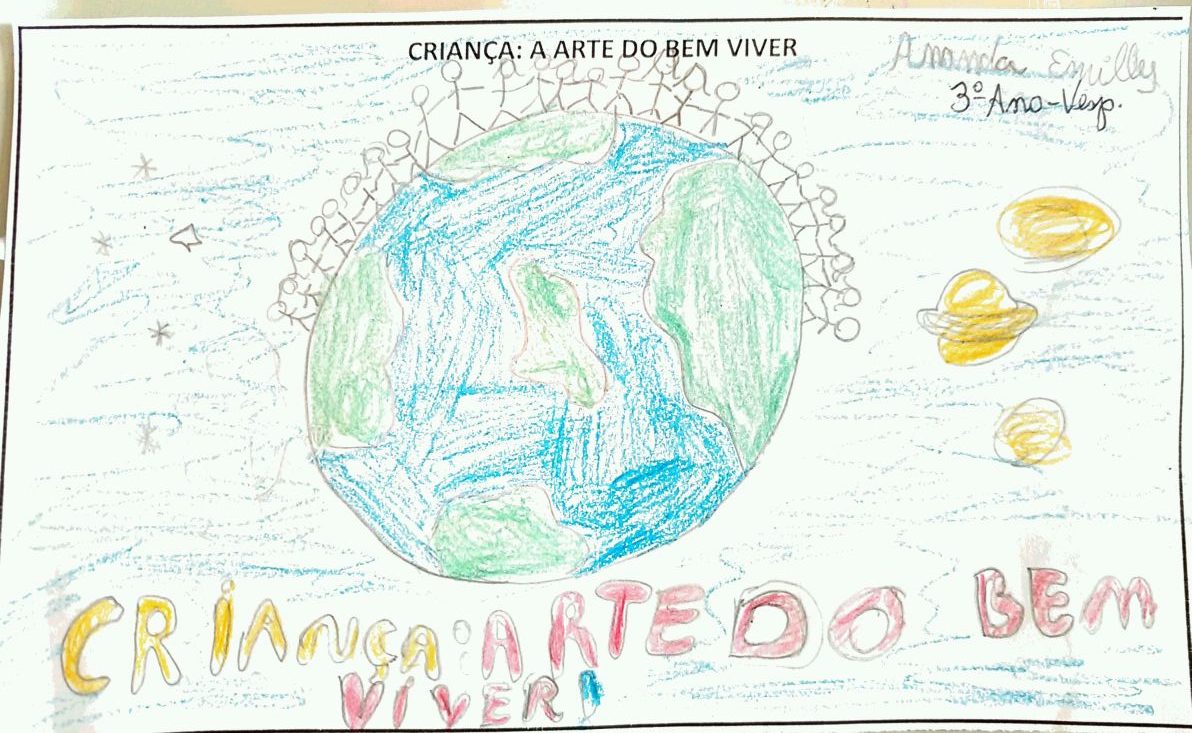 CRIANÇA: A ARTE DO BEM VIVER
Ananda
3º Ano-Vesp.
CRIANÇA: A ARTE DO BEM
VIVER!